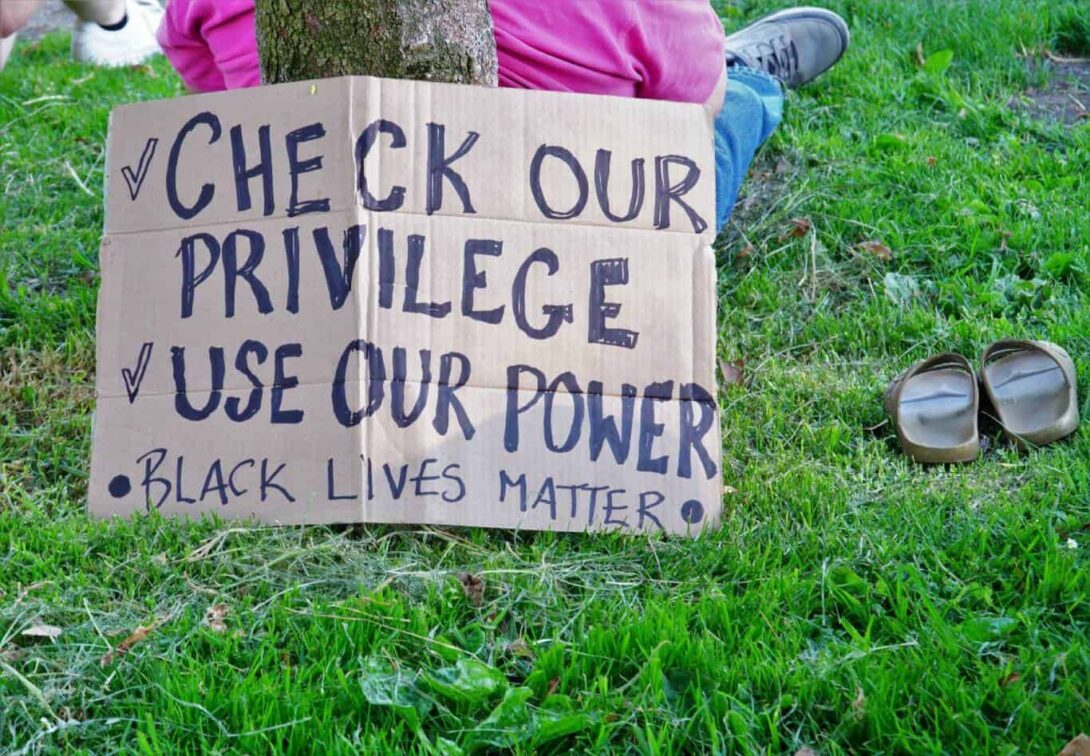 ✓CHECK OUR
PRIVILEGE
✓USE OUR POWER
•BLACK LIVES MATTER•